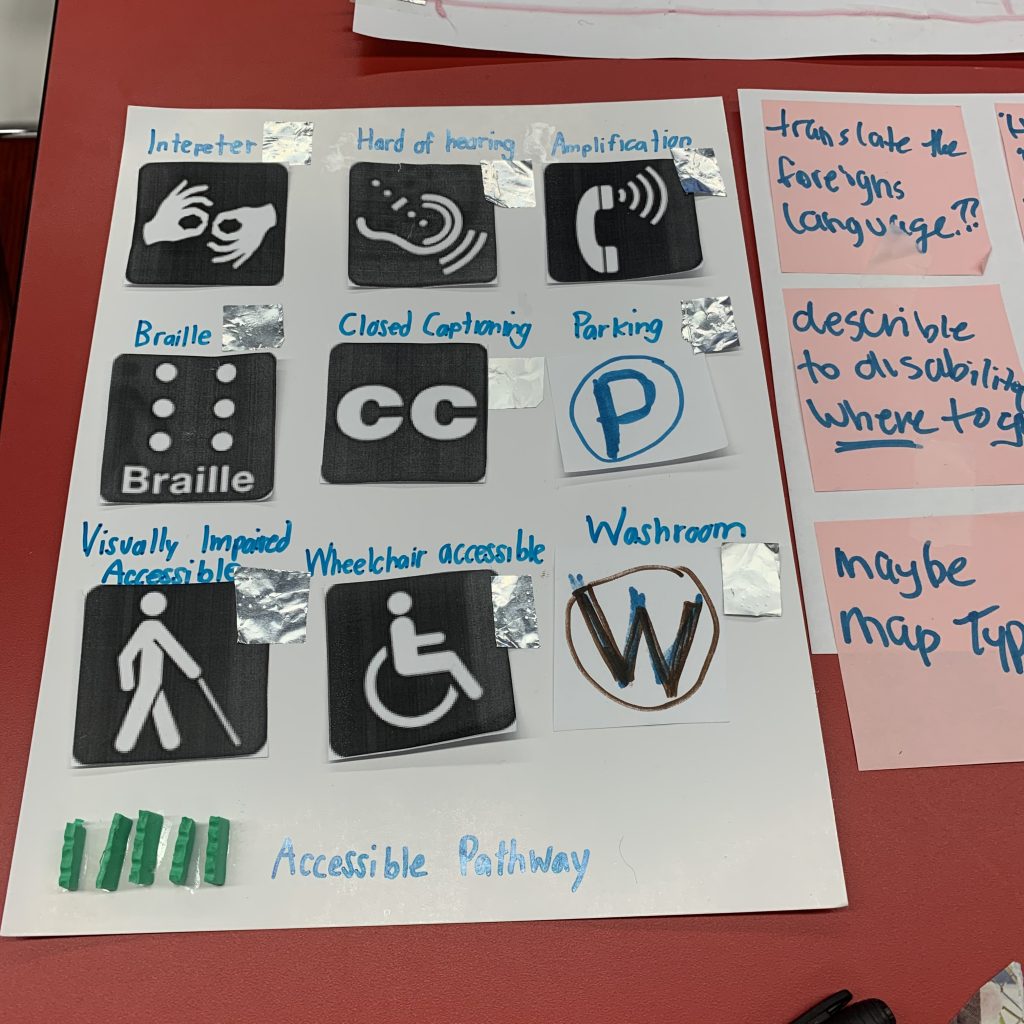 Intepeter
Hard of hearing
Amplification
Braille
Closed Captioning
Parking
Braille
CC
P
Visually Impaired
Accessible
Wheelchair accessible
Washroom
W
Accessible Pathway
translate the
foreigns
language.??
describle
to disability
where to g
maybe
map Typ